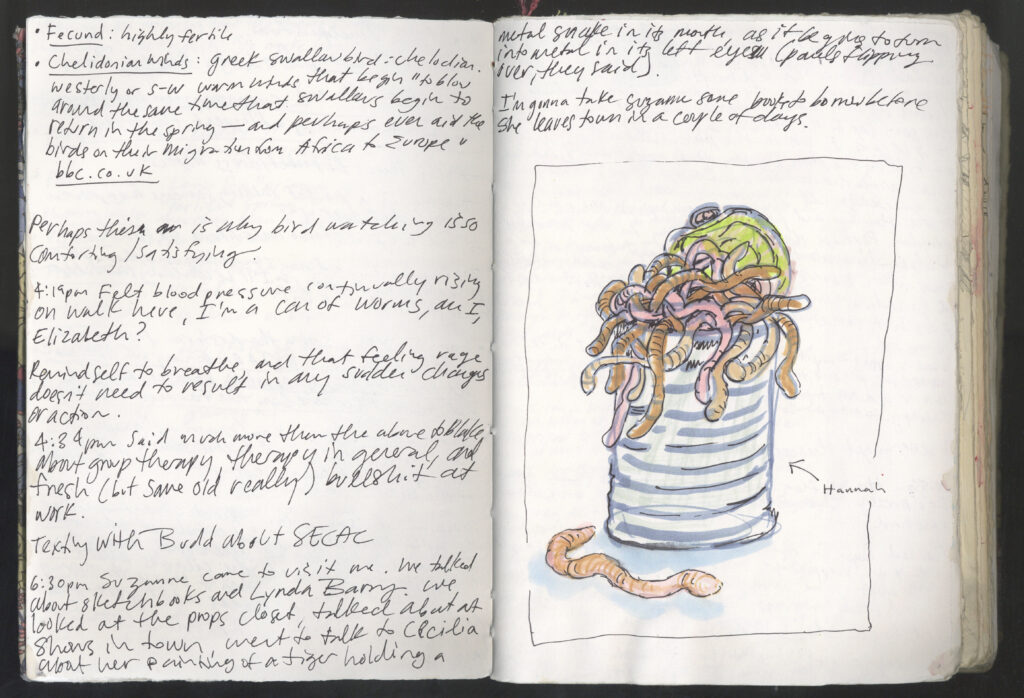 • Fecund: highly fertile
• Chelidonian winds: greek swallow bird: chelodian.
westerly or s-w warm winds that begin "to blow
around the same time that swallows begin to
return in the spring — and perhaps even aid the
birds on their migration from Africa to Europe"
bbc.co.uk
Perhaps this is why bird watching is so
comforting/satisfying.
4:19pm Felt blood pressure continually rising
on walk here, I'm a can of worms, am I,
Elizabeth?
Remind self to breathe, and that feeling rage
doesn't need to result in any sudden changes
or action.
4:34pm Said much more than the above to Blake
about group therapy, therapy in general, and
fresh (but same old really) bullshit at
work.
Texting with Budd about SECAC
6:30pm Suzanne came to visit me. We talked
about sketchbooks and Lynda Barry. We
looked at the props closet, talked about art
shows in town, went to talk to Cecilia
about her painting of a tiger holding a
metal snake in its mouth, as it begins to turn
into metal in its left eye (
over, they said).
I'm gonna take Suzanne some books to borrow before
she leaves town in a couple of days.
Hannah